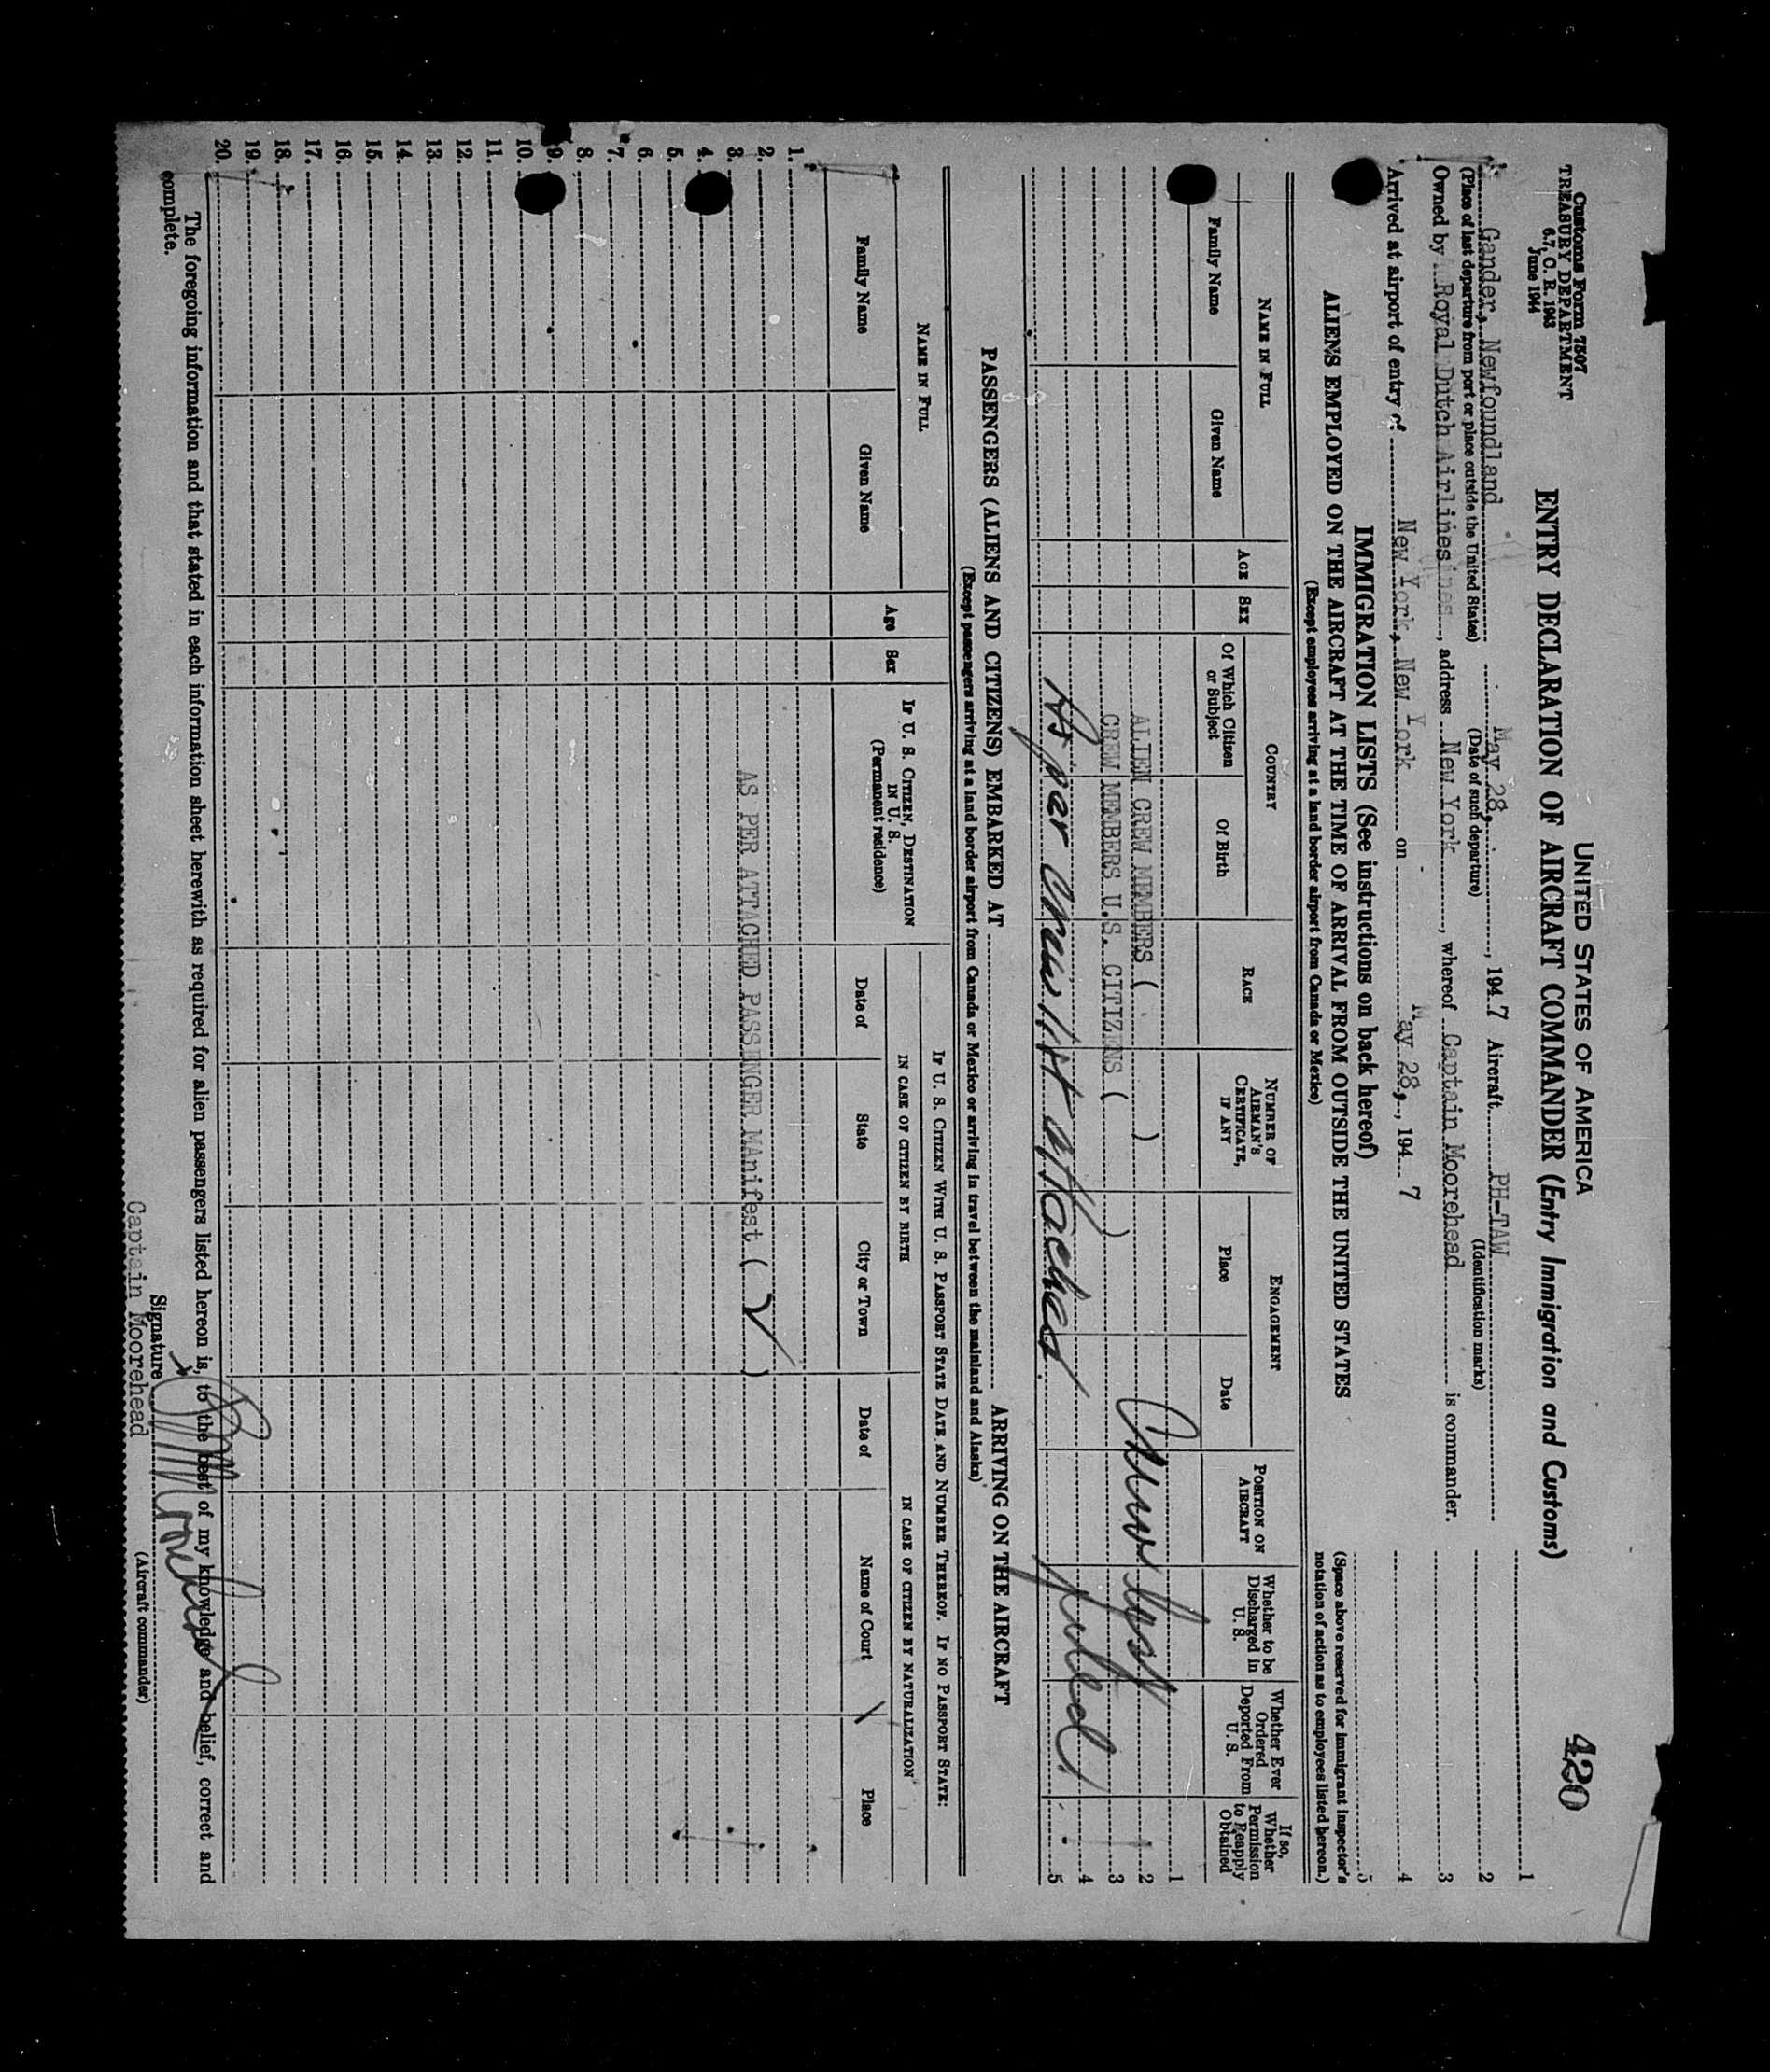 Customs Form 7507
TREASURY DEPARTMENT
6.7, C. R. 1943
June 1944
UNITED STATES OF AMERICA
420
ENTRY DECLARATION OF AIRCRAFT COMMANDER (Entry Immigration and Customs)
Gander, Newfoundland May 28, , 1947 Aircraft PH-TAW
(Place of last departure from port or place outside the United States) (Date of such departure) (Identification marks)
Owned by Royal Dutch Airlines, address New York, whereof Captain Moorehead is commander.
Arrived at airport of entry of New York, New York on May 28, , 1947
1
2
3
4
5
(Space above reserved for immigrant inspector's
notation of action as to employees listed hereon.)
IMMIGRATION LISTS (See instructions on back hereof)
ALIENS EMPLOYED ON THE AIRCRAFT AT THE TIME OF ARRIVAL FROM OUTSIDE THE UNITED STATES
(Except employees arriving at a land border airport from Canada or Mexico)
NAME IN FULL
Family Name
Given Name
AGE
SEX
COUNTRY
Of Which Citizen or Subject
Of Birth
RACE
NUMBER OF AIRMAN'S CERTIFICATE, IF ANY
ENGAGEMENT
Place
Date
POSITION ON AIRCRAFT
Whether to be Discharged in U. S.
Whether Ever Ordered Deported From U. S.
If so, Whether Permission to Reapply Obtained
1
ALIEN CREW MEMBERS ( ) 2
CREW MEMBERS U.S. CITIZENS ( ) 3
Crew list
4
As per crew list attached. 5
PASSENGERS (ALIENS AND CITIZENS) EMBARKED AT ARRIVING ON THE AIRCRAFT
(Except passengers arriving at a land border airport from Canada or Mexico or arriving in travel between the mainland and Alaska)
NAME IN FULL
Family Name
Given Name
Age
Sex
IF U. S. CITIZEN, DESTINATION IN U. S.
(Permanent residence)
IF U. S. CITIZEN WITH U. S. PASSPORT STATE DATE AND NUMBER THEREOF. IF NO PASSPORT STATE:
IN CASE OF CITIZEN BY BIRTH
IN CASE OF CITIZEN BY NATURALIZATION
Date of
State
City or Town
Date of
Name of Court
Place
1.
2.
3. AS PER ATTACHED PASSENGER MAnifest ( ✓ )
4.
5.
6.
7.
8.
9.
10.
11.
12.
13.
14.
15.
16.
17.
18.
19.
20.
The foregoing information and that stated in each information sheet herewith as required for alien passengers listed hereon is, to the best of my knowledge and belief, correct and
complete.
Signature
(Aircraft commander)
Captain Moorehead